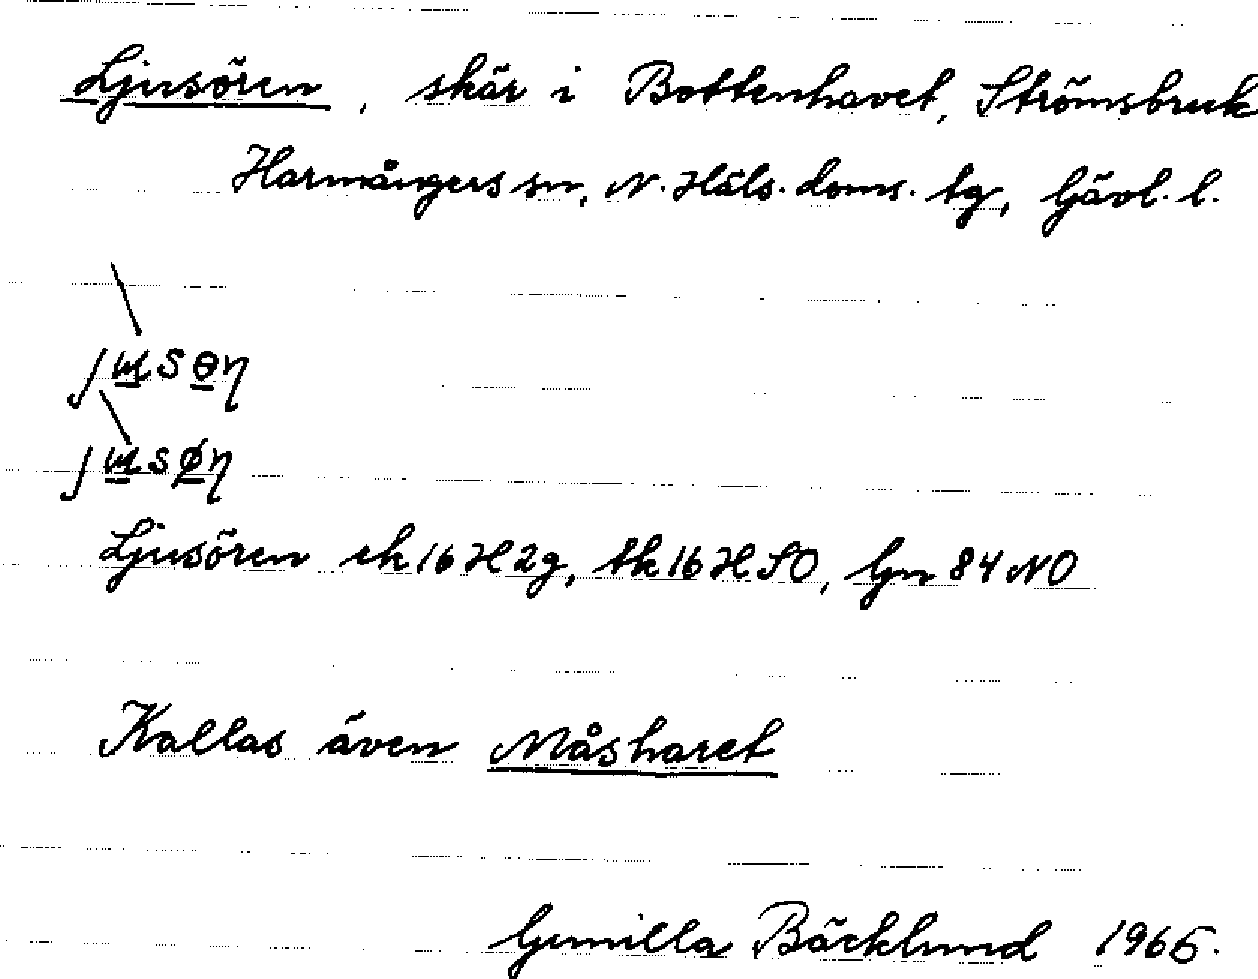 Ljusören, skär i Bottenhavet, Strömsbruk
Harmångers sn, N. Häls. doms. tg, Gävl. l.
Ljusören ek 16 H 2g, tk 16 H SO, Gn 84 NO
Kallas även Måsharet
Gunilla Bäcklund 1965.